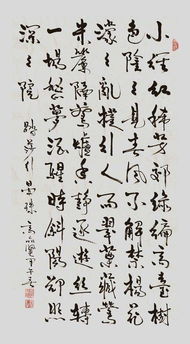 小徑紅稀芳郊綠遍高臺樹
色陰々見春風不解禁楊花
濛々亂撲行人面翠葉藏鶯
朱簾隔燕爐香靜逐遊絲轉
一場愁夢酒醒時斜陽卻照
深々院
踏莎行 晏殊 甲午